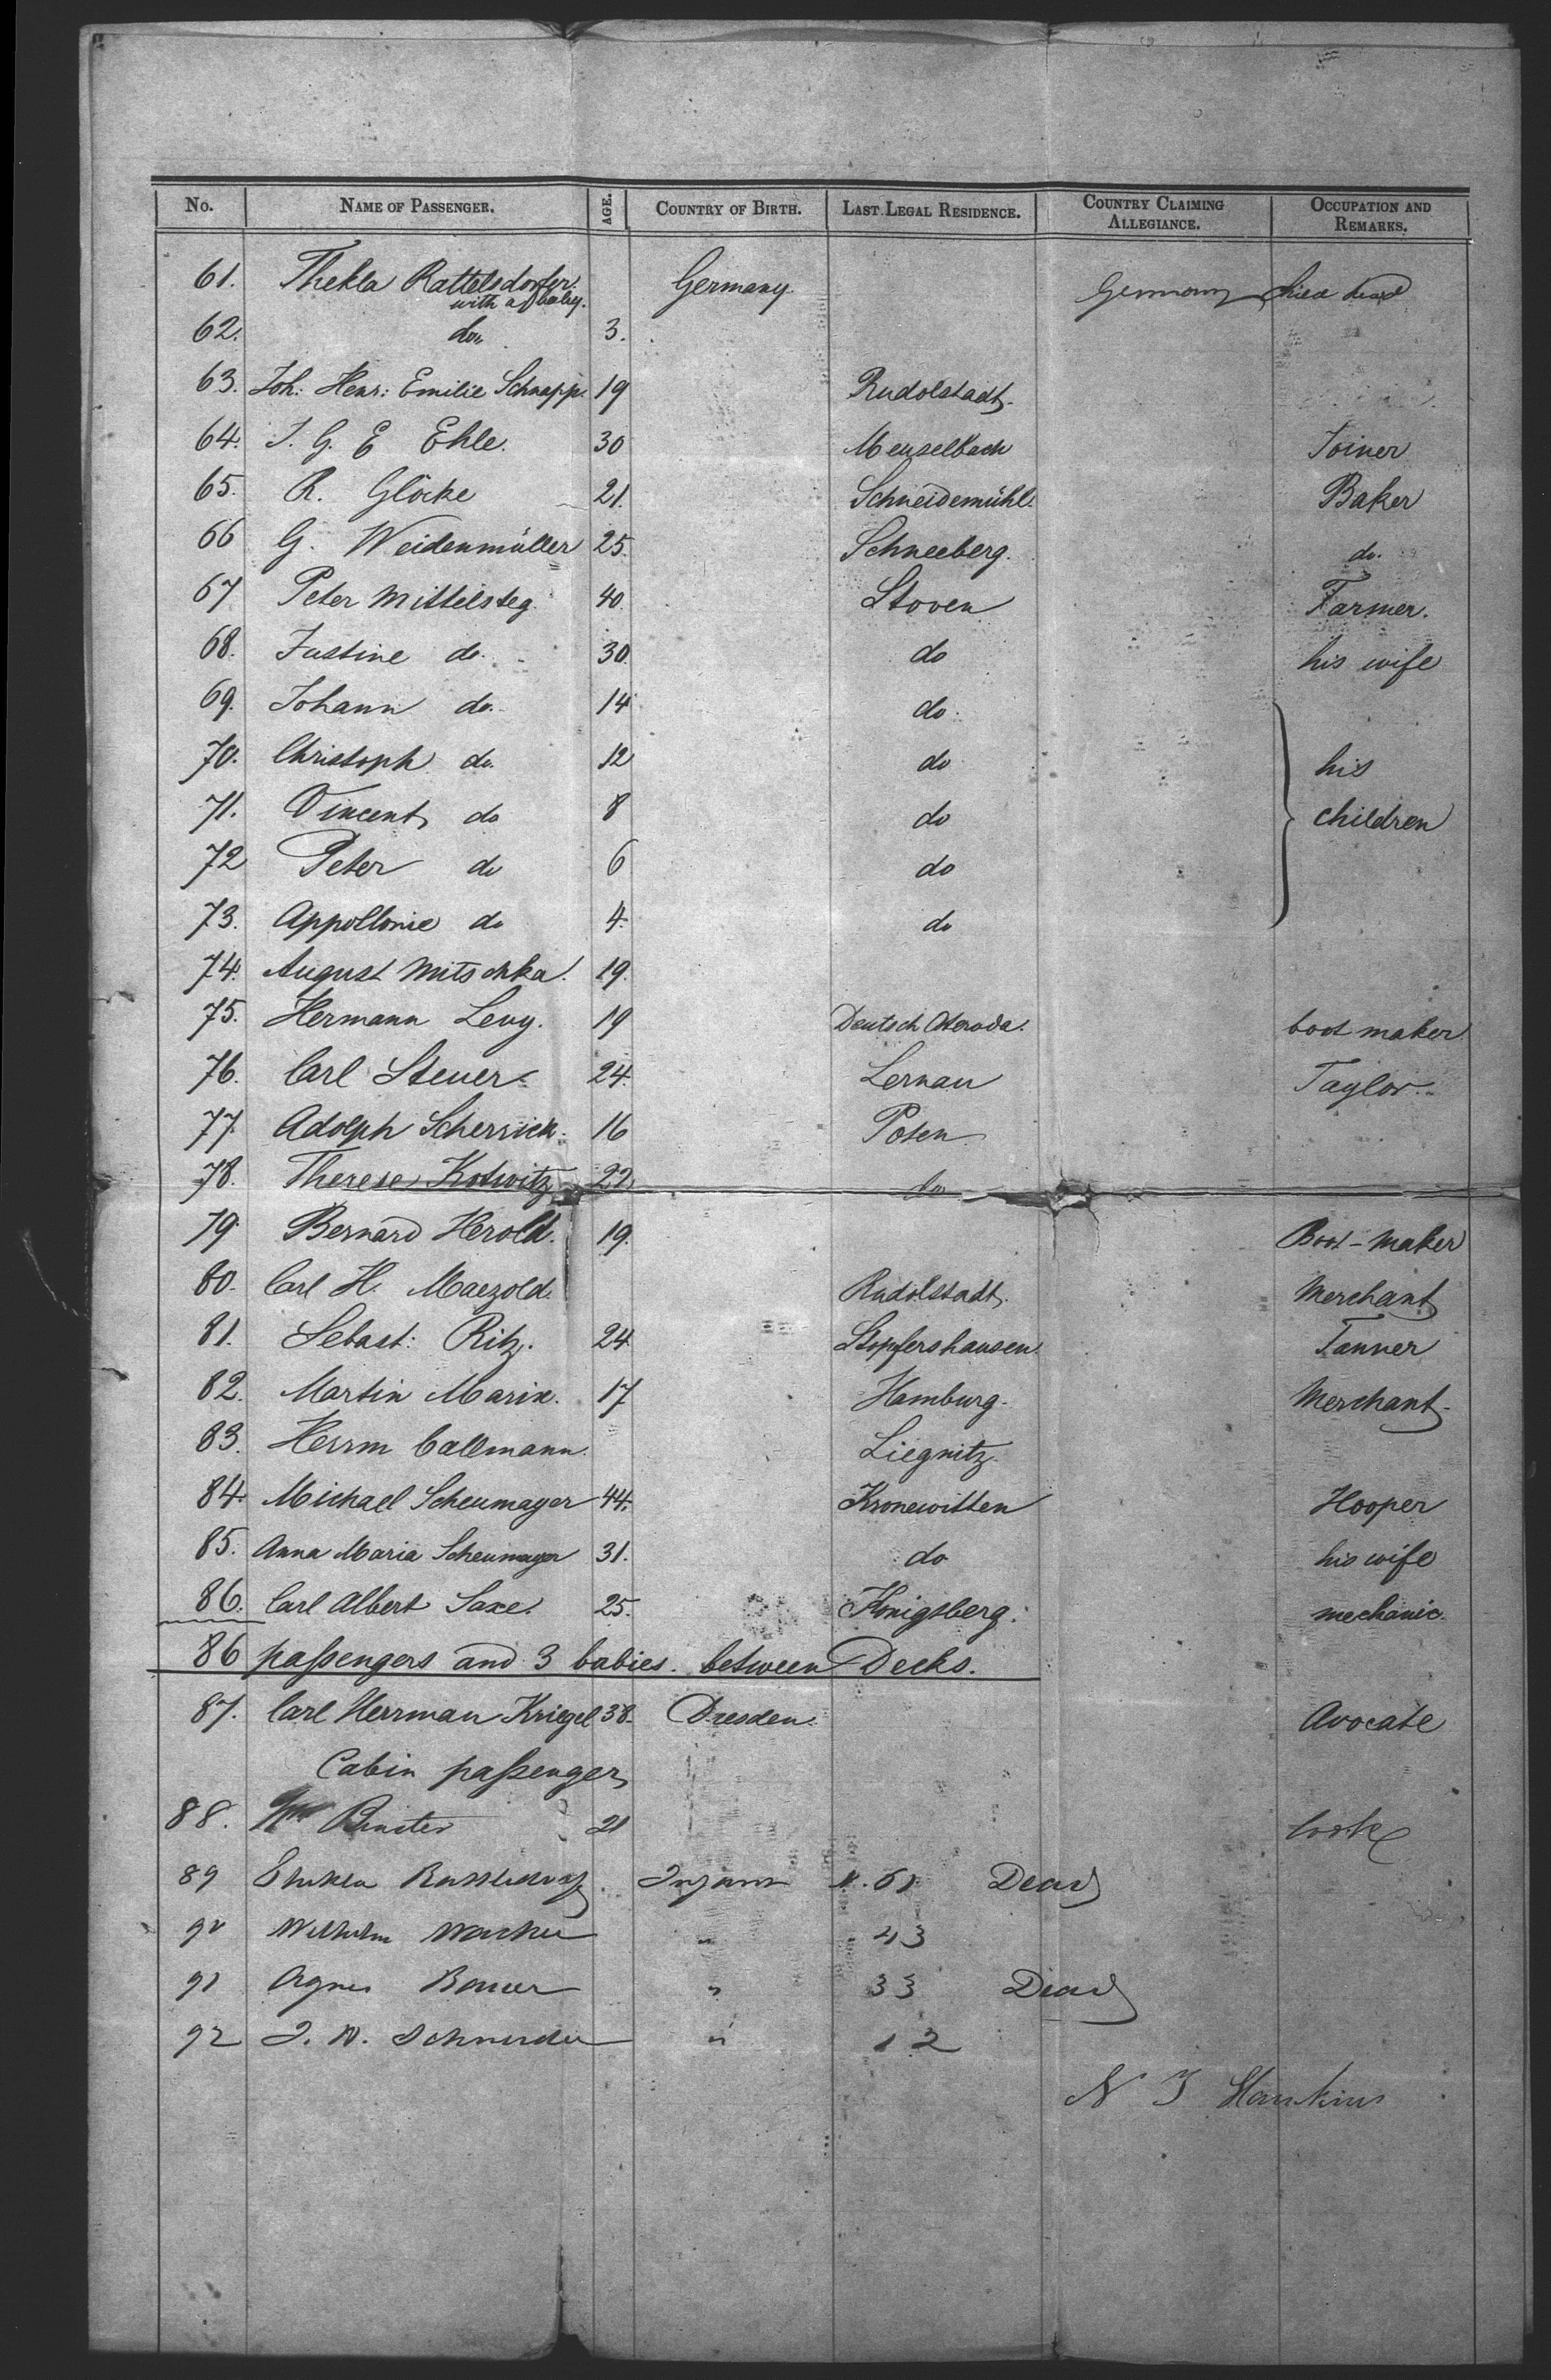 No. NAME OF PASSENGER. AGE. COUNTRY OF BIRTH. LAST LEGAL RESIDENCE. COUNTRY CLAIMING ALLEGIANCE. OCCUPATION AND REMARKS.
61. Thekla Rattelsdorfer. Germany. Germany child dead
with a baby.
62. do. 3.
63. Joh: Henr: Emilie Schnapp. 19 Rudolstadt.
64. J. G. E Ehle. 30 Meuselbach Joiner
65. R. Glöcke 21. Schneidemühl. Baker
66 G. Weidenmüller 25. Schneeberg. do.
67 Peter Mittelsteg 40. Stoven Farmer.
68. Justine do. 30. do his wife
69. Johann do. 14 do.
70. Christoph do. 12 do his
71. Vincent do 8 do children
72 Peter do 6 do
73. Appollonie do 4. do
74. August Mitschka. 19.
75. Hermann Levy. 19 Deutsch Osteroda. boot maker
76. Carl Steuer 24. Lernau Taylor.
77. Adolph Scherrick. 16 Posen
78. Therese Kotwitz 22 do
79. Bernard Herold. 19. Boot-maker
80. Carl H. Maezold. Rudolstadt. Merchant
81. Sebast: Ritz. 24 Stopfershausen. Tanner
82. Martin Marix. 17 Hamburg. Merchant.
83. Herrm Callmann. Liegnitz.
84. Michael Scheumayer 44. Kronewitten Hooper
85. Anna Maria Scheumayer 31. do his wife
86. Carl Albert Saxe. 25. Königsberg. mechanic.
86 passengers and 3 babies. between Decks.
87. Carl Herrman Kriegel 38. Dresden. Avocate
Cabin passenger
88. 21 Cook
89 Infant N. 61 Dead
90 Wilhelm " " 43
91 Agnes Bauer " 33 Dead
92 J. W. Schneider " 12
N J Hawkins